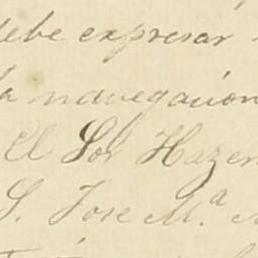 debe expresar
la navegacion
El Sor Hazen
S. Jose M.ª